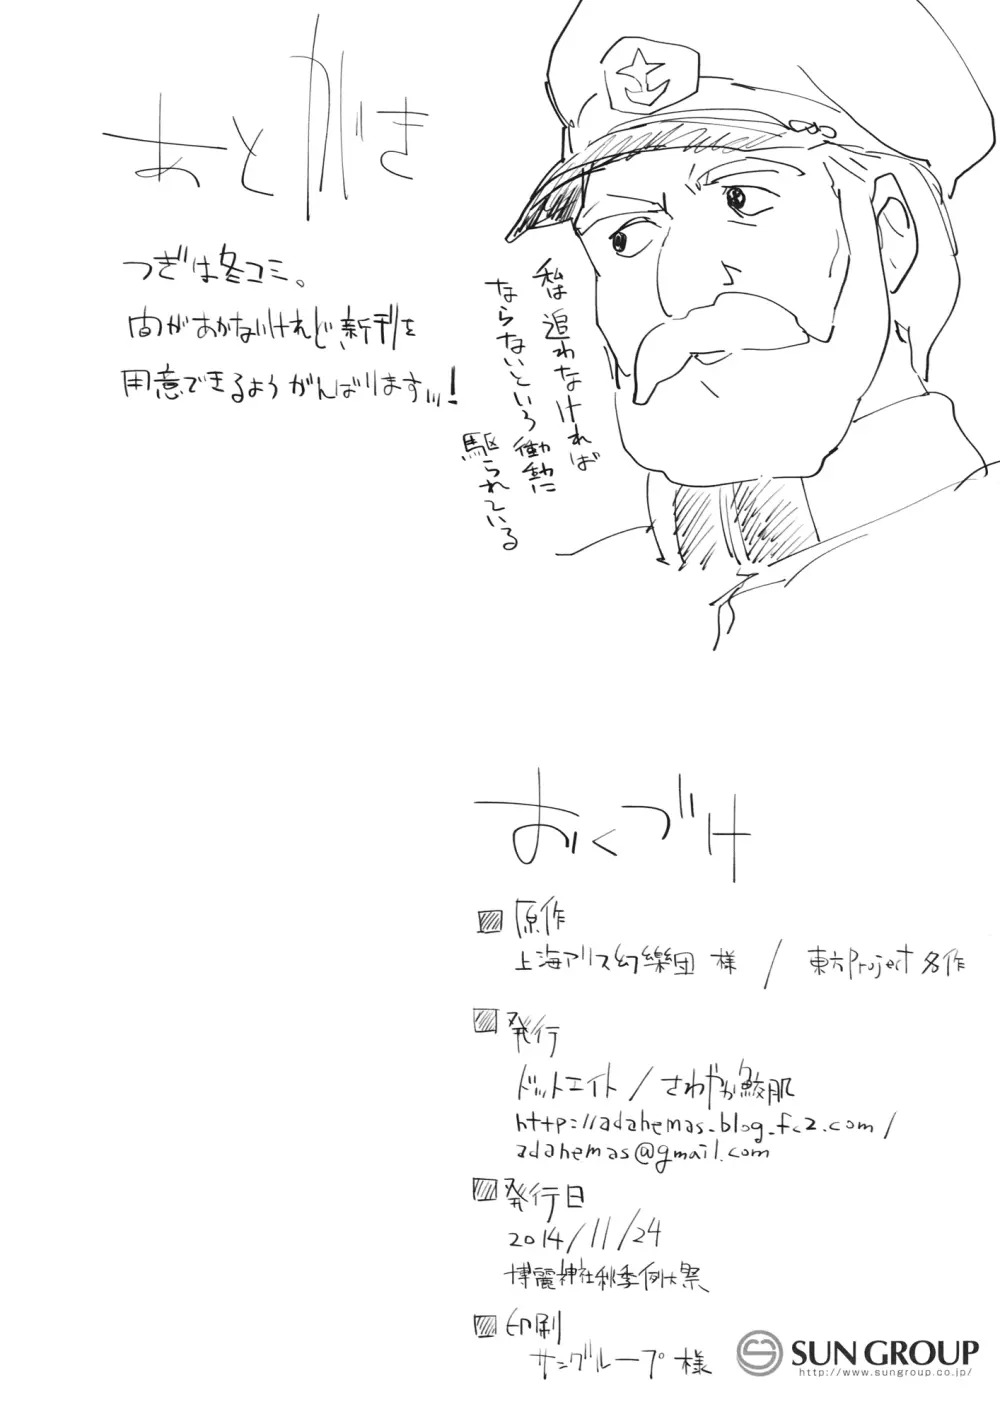 あとがき
つぎは冬コミ。
間があかないけれど、新刊を
用意できるようがんばります!
私は追わなければ
ならないという衝動に
駆られている
おくづけ
原作
上海アリス幻樂団 様 / 東方Project 名作
発行
ドットエイト / さわやか鮫肌
http://adahemas.blog.fc2.com/
adahemas@gmail.com
発行日
2014/11/24
博麗神社秋季例大祭
印刷
サングループ 様
SUN GROUP
http://www.sungroup.co.jp/